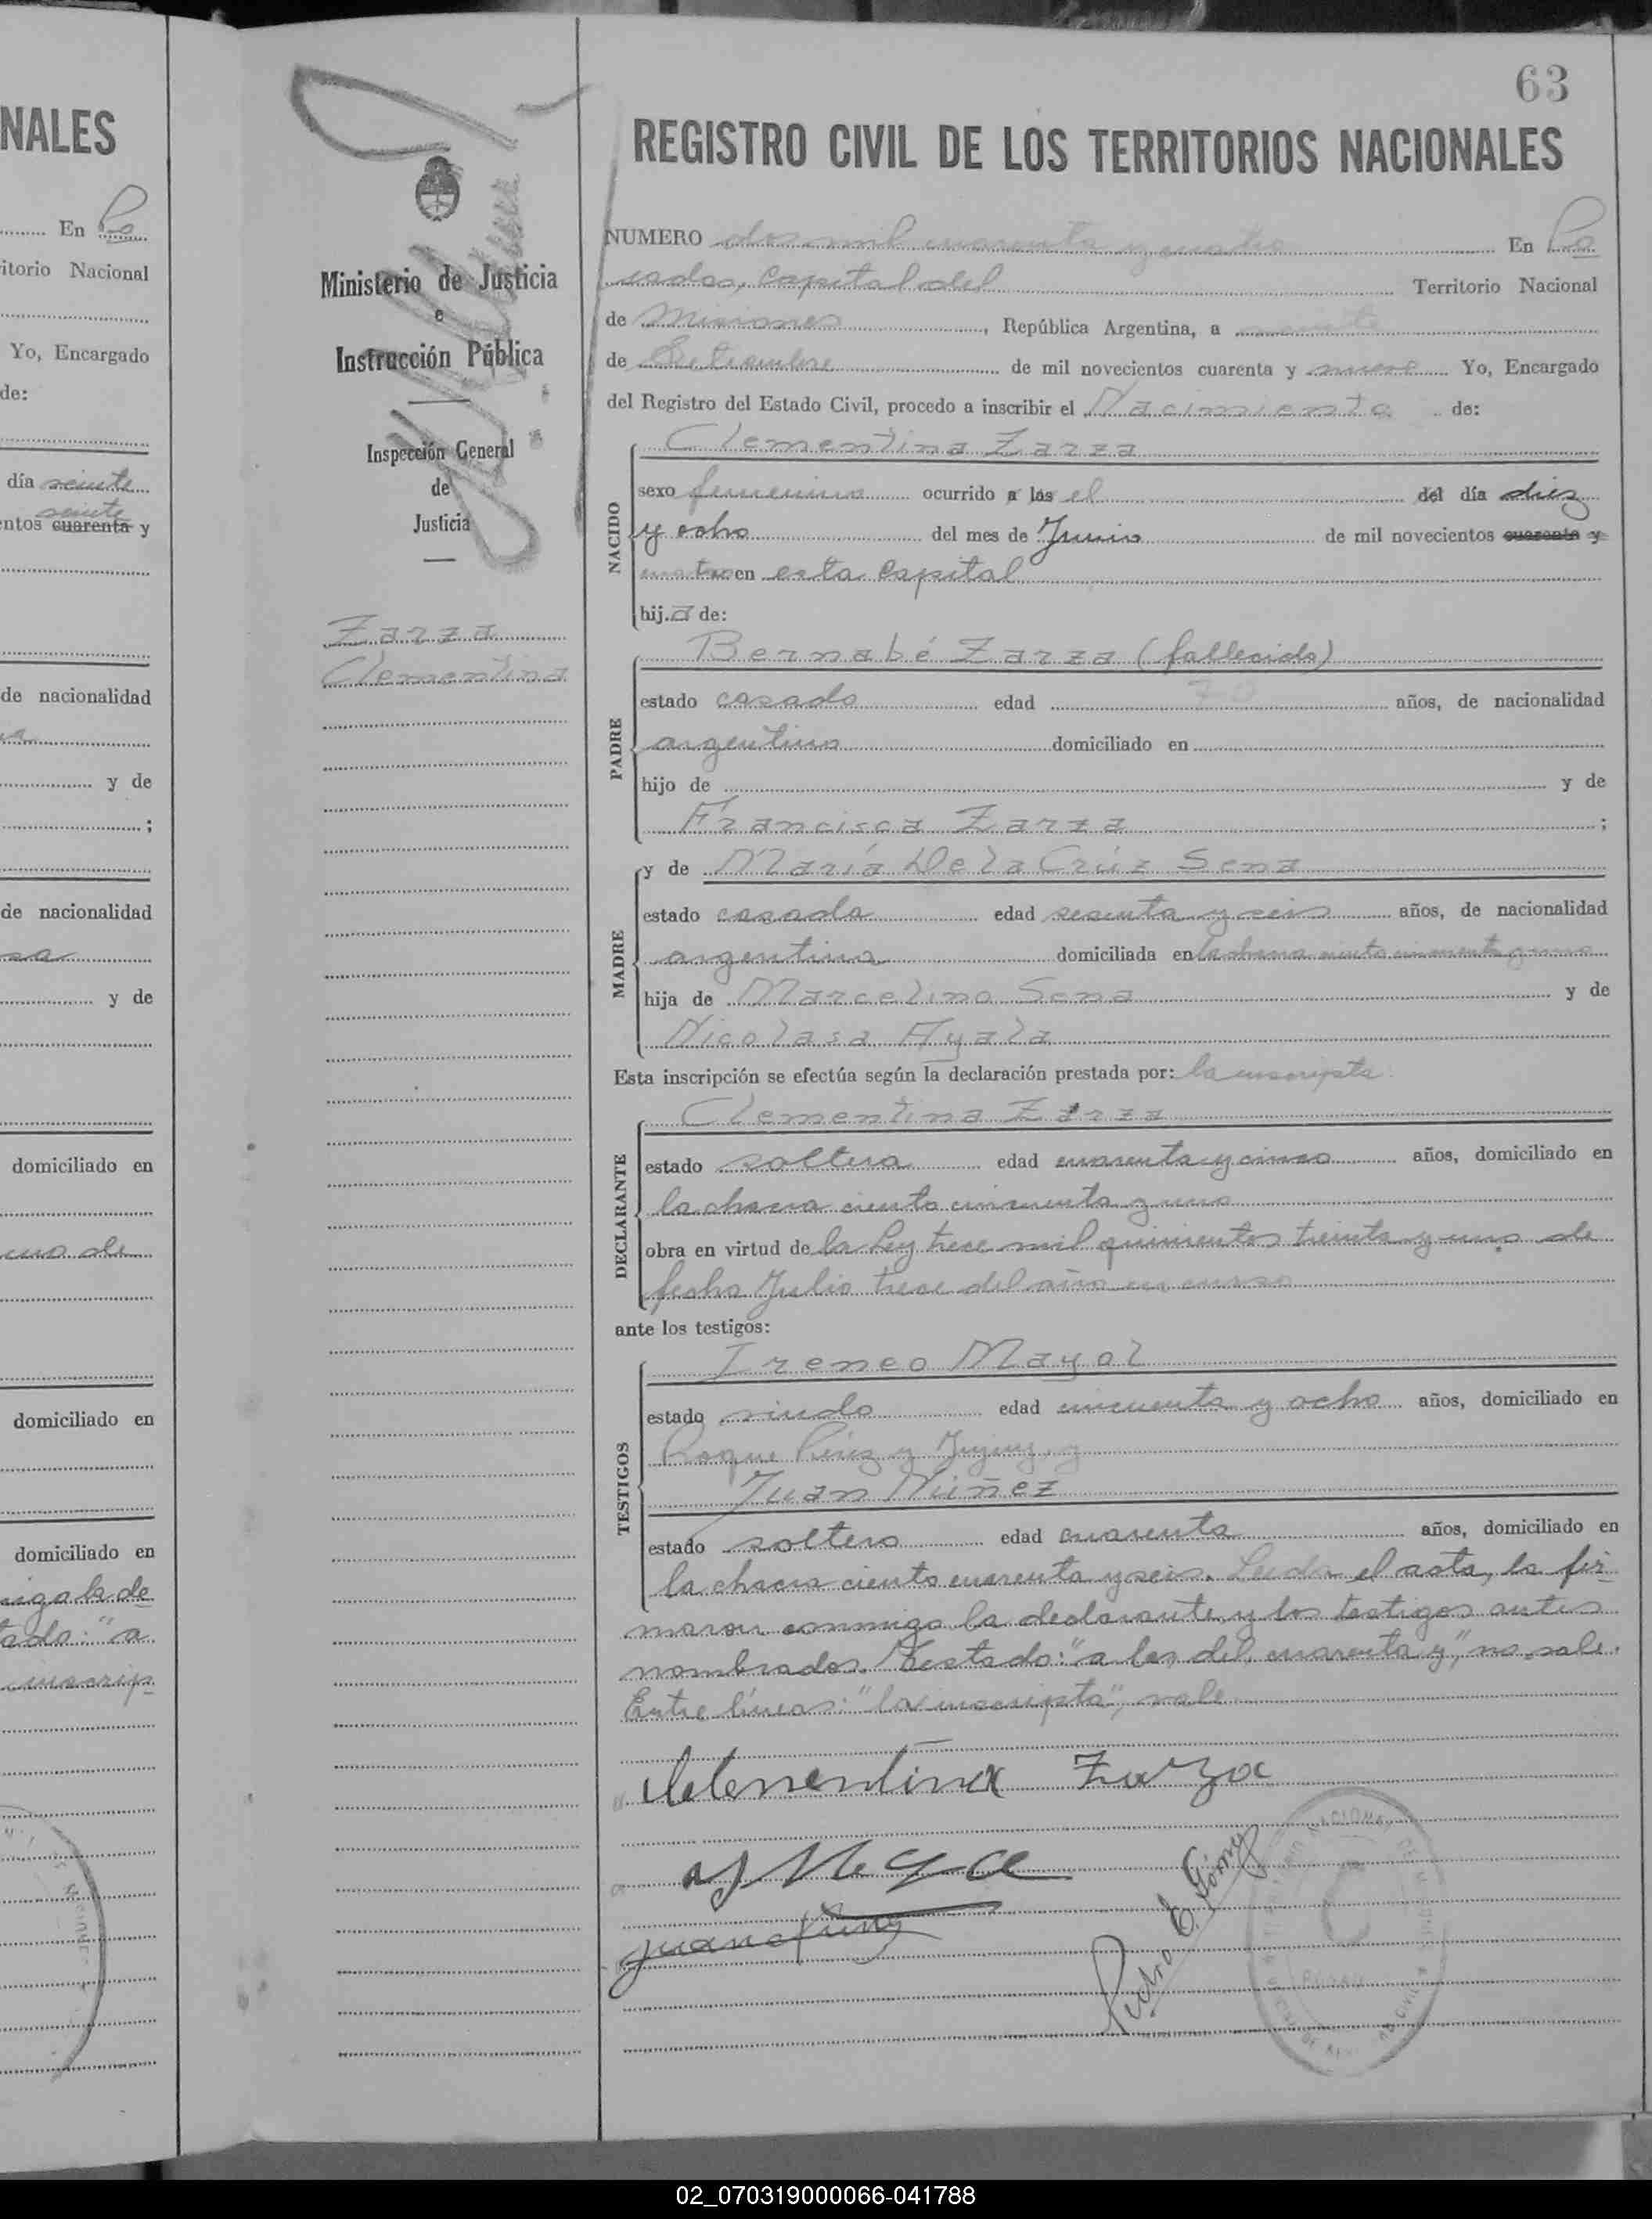 NALES
En Po
itorio Nacional
Yo, Encargado
de:
día veinte
veinte
ntos cuarenta y
de nacionalidad
y de
;
de nacionalidad
y de
domiciliado en
domiciliado en
domiciliado en
inscrip
Ministerio de Justicia
e
Instrucción Pública
Inspección General
de
Justicia
Zarza
Clementina
63
REGISTRO CIVIL DE LOS TERRITORIOS NACIONALES
NUMERO dos mil cuarenta y cuatro En Po
sadas, Capital del Territorio Nacional
de Misiones, República Argentina, a
de Setiembre de mil novecientos cuarenta y nueve Yo, Encargado
del Registro del Estado Civil, procedo a inscribir el Nacimiento de:
NACIDO
Clementina Zarza
sexo femenino ocurrido a las el del día diez
y ocho del mes de Junio de mil novecientos cuarenta y
cuatro en esta Capital
hija de:
PADRE
Bernabé Zarza (fallecido)
estado casado edad años, de nacionalidad
argentino domiciliado en
hijo de y de
Francisca Zarza ;
MADRE
y de María De la Cruz Sena
estado casada edad sesenta y seis años, de nacionalidad
argentina domiciliada en la chacra ciento cincuenta y uno
hija de Marcelino Sena y de
Nicolasa Ayala
Esta inscripción se efectúa según la declaración prestada por: la inscripta
DECLARANTE
Clementina Zarza
estado soltera edad cuarenta y cinco años, domiciliado en
la chacra ciento cincuenta y uno
obra en virtud de la Ley trece mil quinientos treinta y uno de
fecha Julio trece del año en curso
ante los testigos:
TESTIGOS
Ireneo Mayol
estado viudo edad cincuenta y ocho años, domiciliado en
Roque Pérez y Jujuy, y
Juan Núñez
estado soltero edad cuarenta años, domiciliado en
la chacra ciento cuarenta y seis. Leída el acta, la fir
maron conmigo la declarante y los testigos antes
nombrados. Testado: "a las, del, cuarenta y", no vale.
Entre líneas: "la inscripta", vale
Clementina Zarza
Pedro E. Gómez
02_070319000066-041788